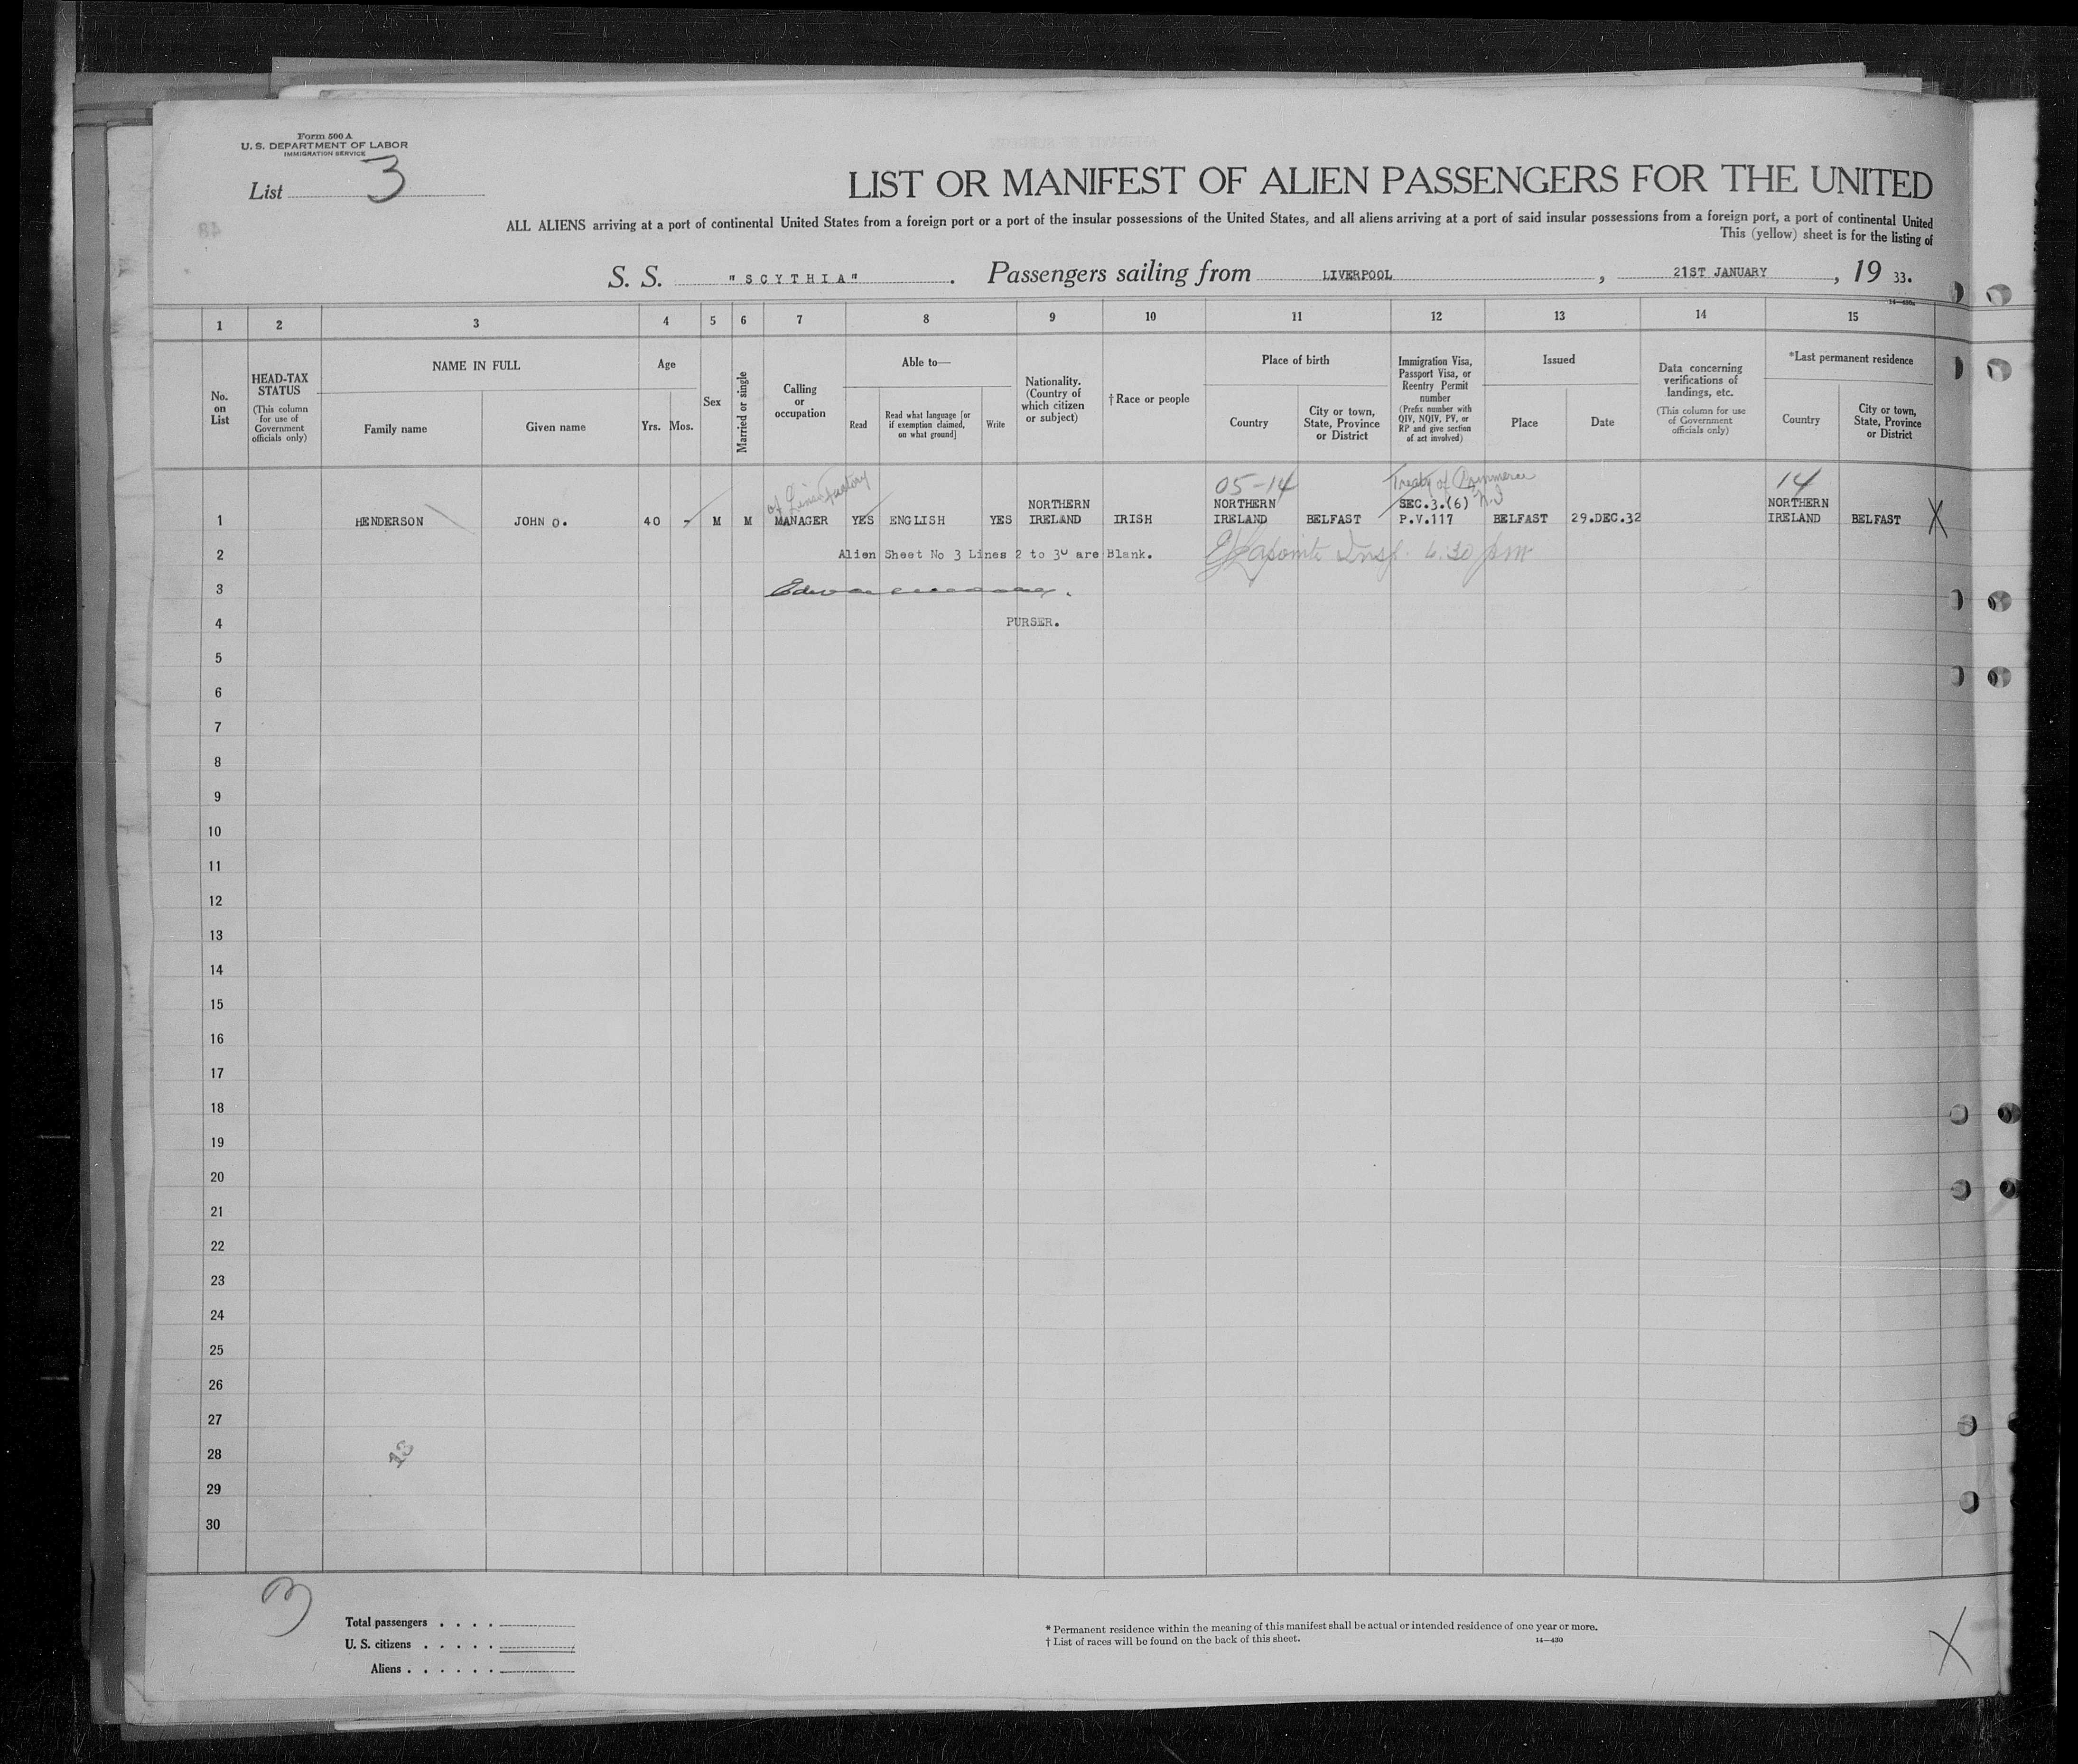 Form 500 A
U. S. DEPARTMENT OF LABOR
IMMIGRATION SERVICE
List 3
LIST OR MANIFEST OF ALIEN PASSENGERS FOR THE UNITED
ALL ALIENS arriving at a port of continental United States from a foreign port or a port of the insular possessions of the United States, and all aliens arriving at a port of said insular possessions from a foreign port, a port of continental United
This (yellow) sheet is for the listing of
S. S. "SCYTHIA". Passengers sailing from LIVERPOOL, 21ST JANUARY, 19 33.
14—430a
1 2 3 4 5 6 7 8 9 10 11 12 13 14 15
No. on List
HEAD-TAX STATUS (This column for use of Government officials only)
NAME IN FULL
Family name
Given name
Age
Yrs. Mos.
Sex
Married or single
Calling or occupation
Able to—
Read
Read what language [or if exemption claimed, on what ground]
Write
Nationality. (Country of which citizen or subject)
†Race or people
Place of birth
Country
City or town, State, Province or District
Immigration Visa, Passport Visa, or Reentry Permit number (Prefix number with QIV, NQIV, PV, or RP and give section of act involved)
Issued
Place
Date
Data concerning verifications of landings, etc. (This column for use of Government officials only)
*Last permanent residence
Country
City or town, State, Province or District
of Linen Factory 05-14 Treaty of Commerce N.I 14
1 HENDERSON JOHN O. 40 - M M MANAGER YES ENGLISH YES NORTHERN IRELAND IRISH NORTHERN IRELAND BELFAST SEC.3.(6) P.V.117 BELFAST 29.DEC.32 NORTHERN IRELAND BELFAST X
2 Alien Sheet No 3 Lines 2 to 30 are Blank. Lapointe Insp. 6:30 pm
3
4 PURSER.
5
6
7
8
9
10
11
12
13
14
15
16
17
18
19
20
21
22
23
24
25
26
27
28
29
30
3
Total passengers . . . .
U. S. citizens . . . . .
Aliens . . . . . .
* Permanent residence within the meaning of this manifest shall be actual or intended residence of one year or more.
† List of races will be found on the back of this sheet. 14—430
X